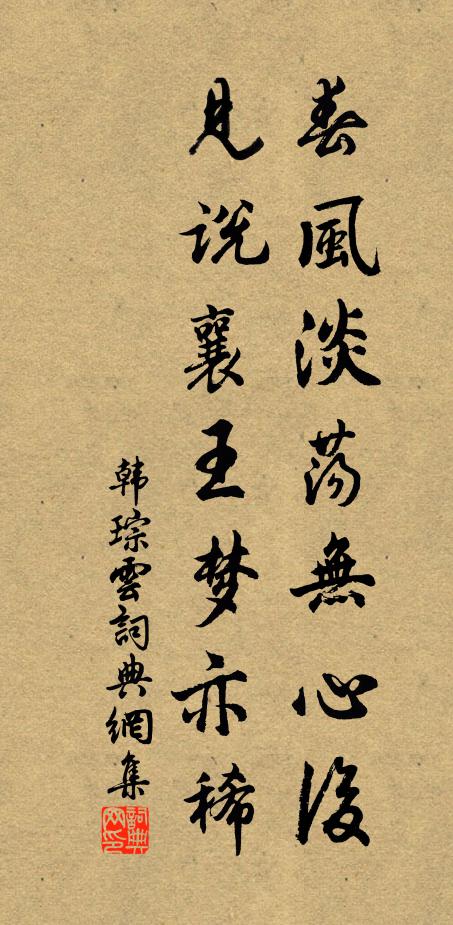 春風淡荡無心後
見说襄王梦亦稀
韩琮雲詞典網集
詞典网印